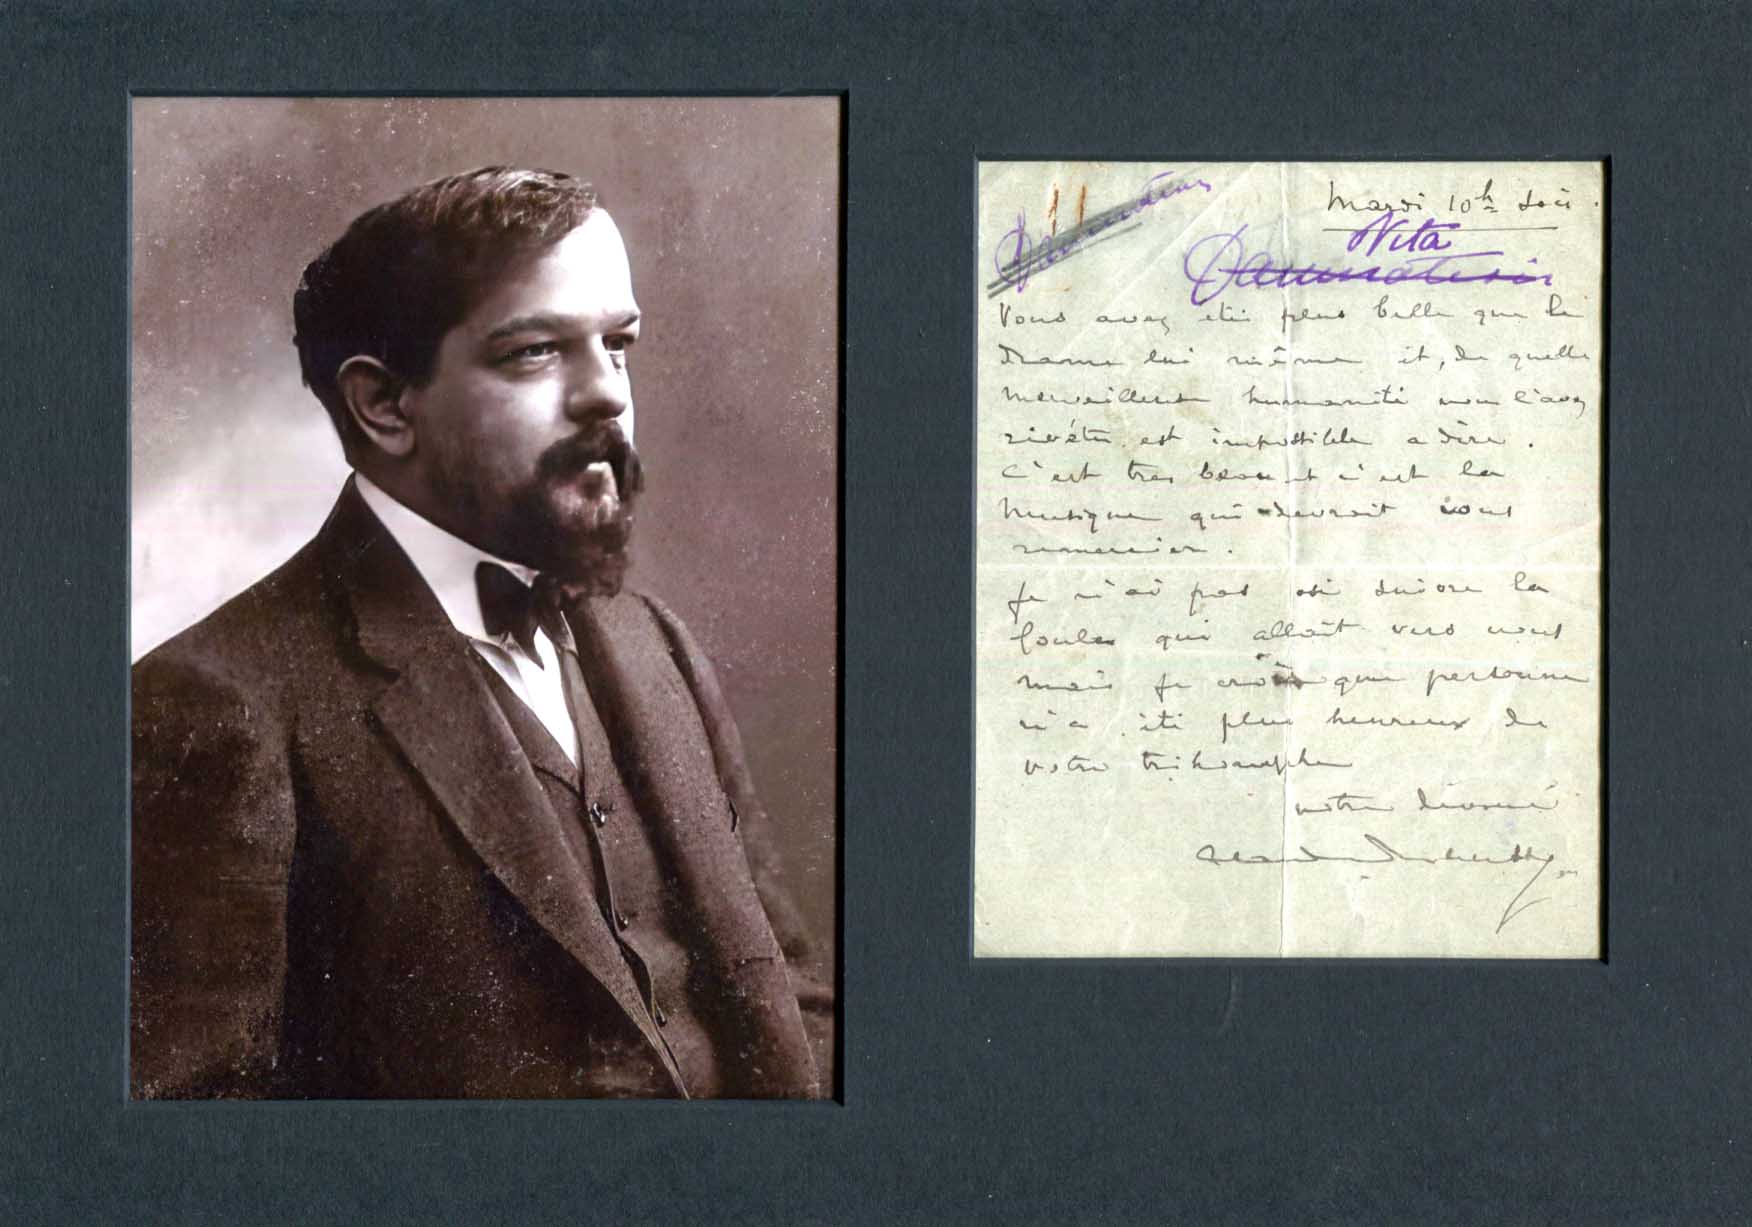 Mardi 10h soir.
Nita
Damnation
Vous avez été plus belle que le
drame lui même et, de quelle
merveilleuse humanité vous l'avez
revêtu est impossible a dire.
C'est tres beau et c'est la
musique qui devrait vous
remercier.
Je n'ai pas osé suivre la
foule qui allait vers vous
mais je crois que personne
n'a été plus heureux de
votre trihomphe
votre dévoué
Claude Debussy